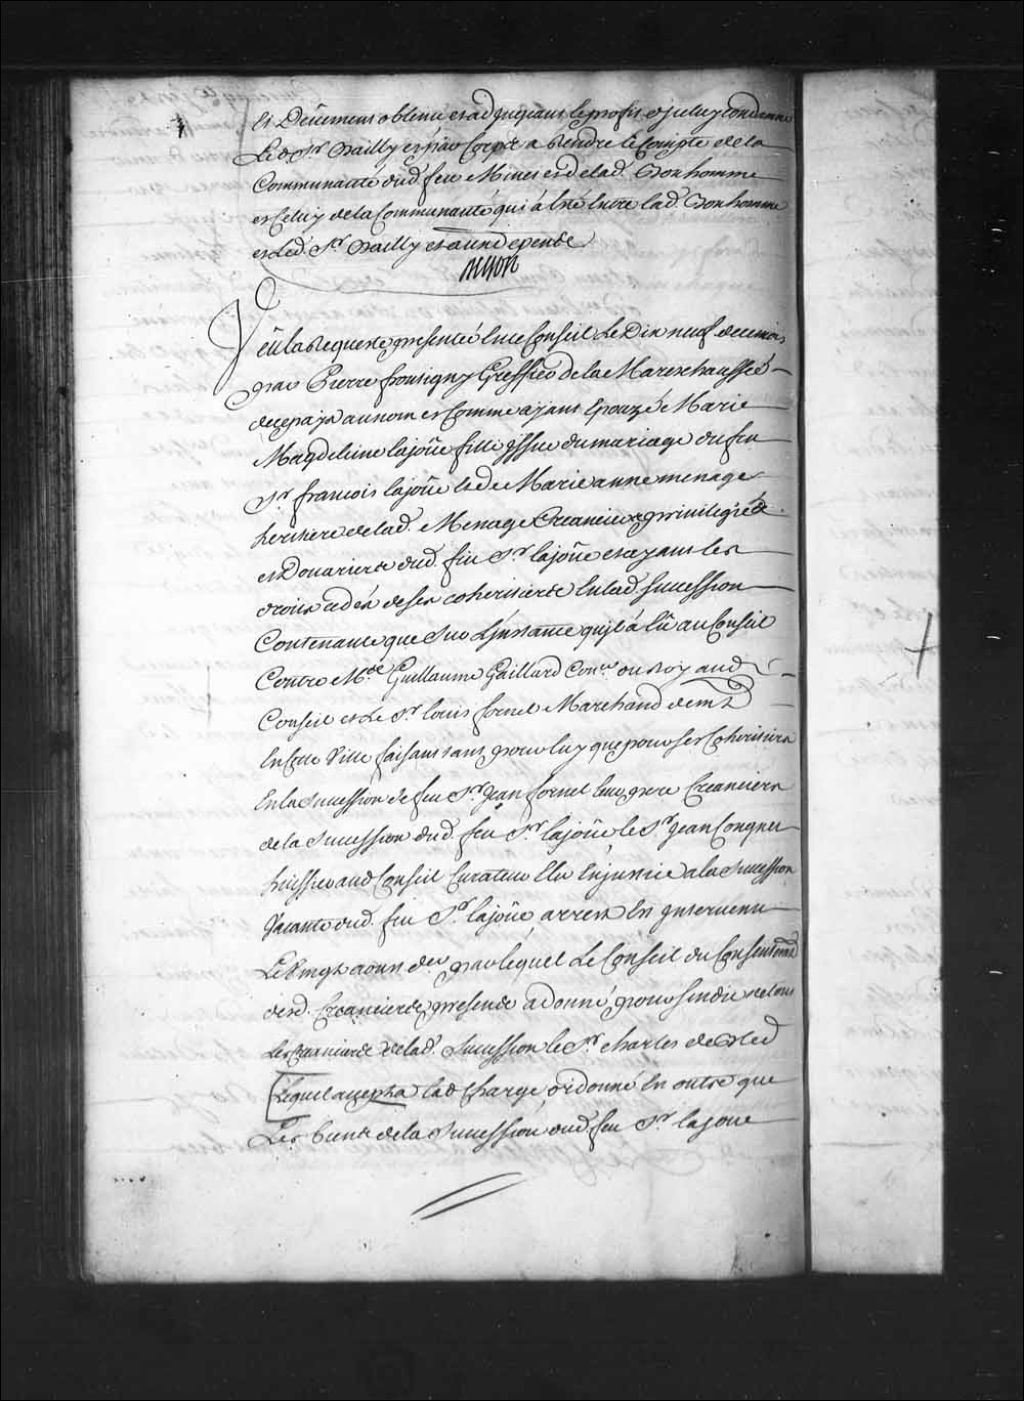 Et Deüement obtenu et adjugeant le profit d'jceluy condamne
Led. Sr. Bailly et par Corps a Rendre le Compte de la
Communauté dud. feu Miner et de lad. Bonhomme
et Celuy de la Communauté qui à Eté Entre lad. Bonhomme
et Led. Sr. Bailly et aux depends
Veü la Requeste presentée En ce Conseil Le Dix neuf de ce mois
par Pierre frontigny Greffier de la Mareschaussée
de ce pays au nom et Comme ayant Epouzé Marie
Magdeleine lajoüe fille yssue du mariage du feu
Sr. francois lajoüe et de Marie anne menage
heritiere de lad. Menage Creanciere privilegiée
et Douariere dud. feu Sr. lajoüe et ayant les
droits cedés de ses coheritiers En lad. succession
Contenante que Sur L'jnstance qu'jl à Eü au Conseil
Contre Me. Guillaume Gaillard Coner. du Roy aud.
Conseil et Le Sr. louis fornel Marchand dem.t
En Cette Ville faisant tant pour luy que pour ses Coheritiers
En la Succession de feu Sr. Jean fornel leur pere Creanciers
de la Succession dud. feu Sr. lajoüe le Sr. Jean Congnet
huissier aud. Conseil Curateur Elu En justice a la Succession
Vacante dud. feu Sr. lajoüe arrest Est jntervenu
Le Vingt aoust der. par lequel Le Conseil du Consentement
desd. Creanciers presents a donné pour sindic
Les Creanciers de lad. Succession le Sr. charles
Lequel accepta lad. Charge, ordonné En outre que
Les biens de la Succession dud. feu Sr. lajoüe